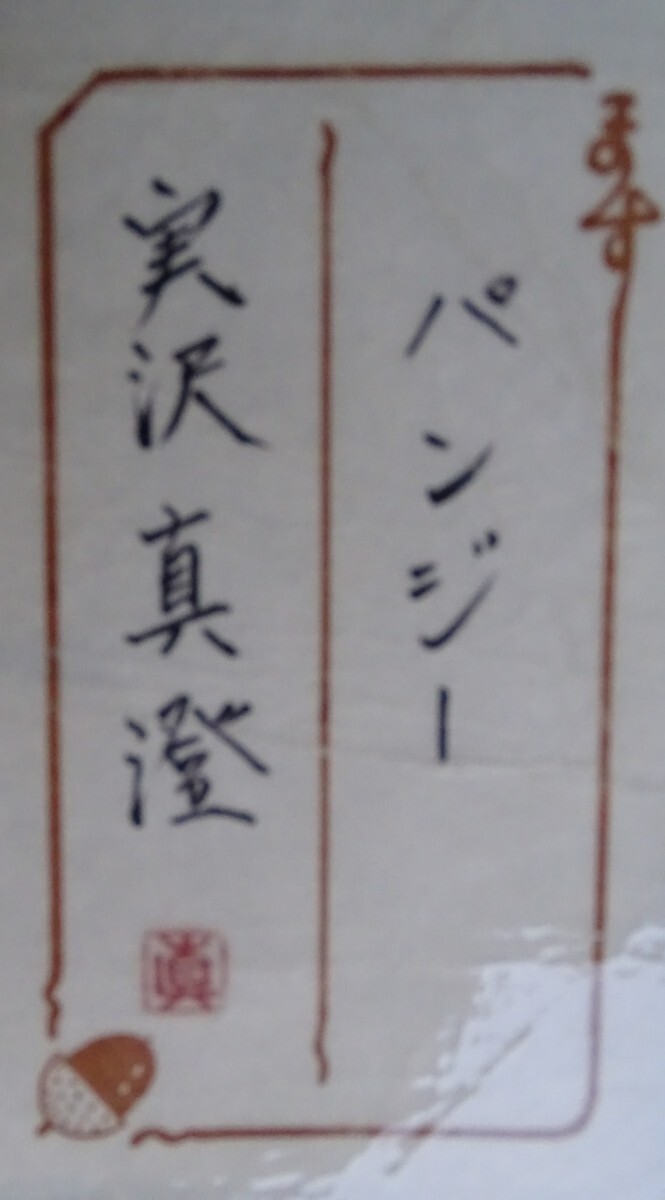 パンジー
実沢真澄
眞